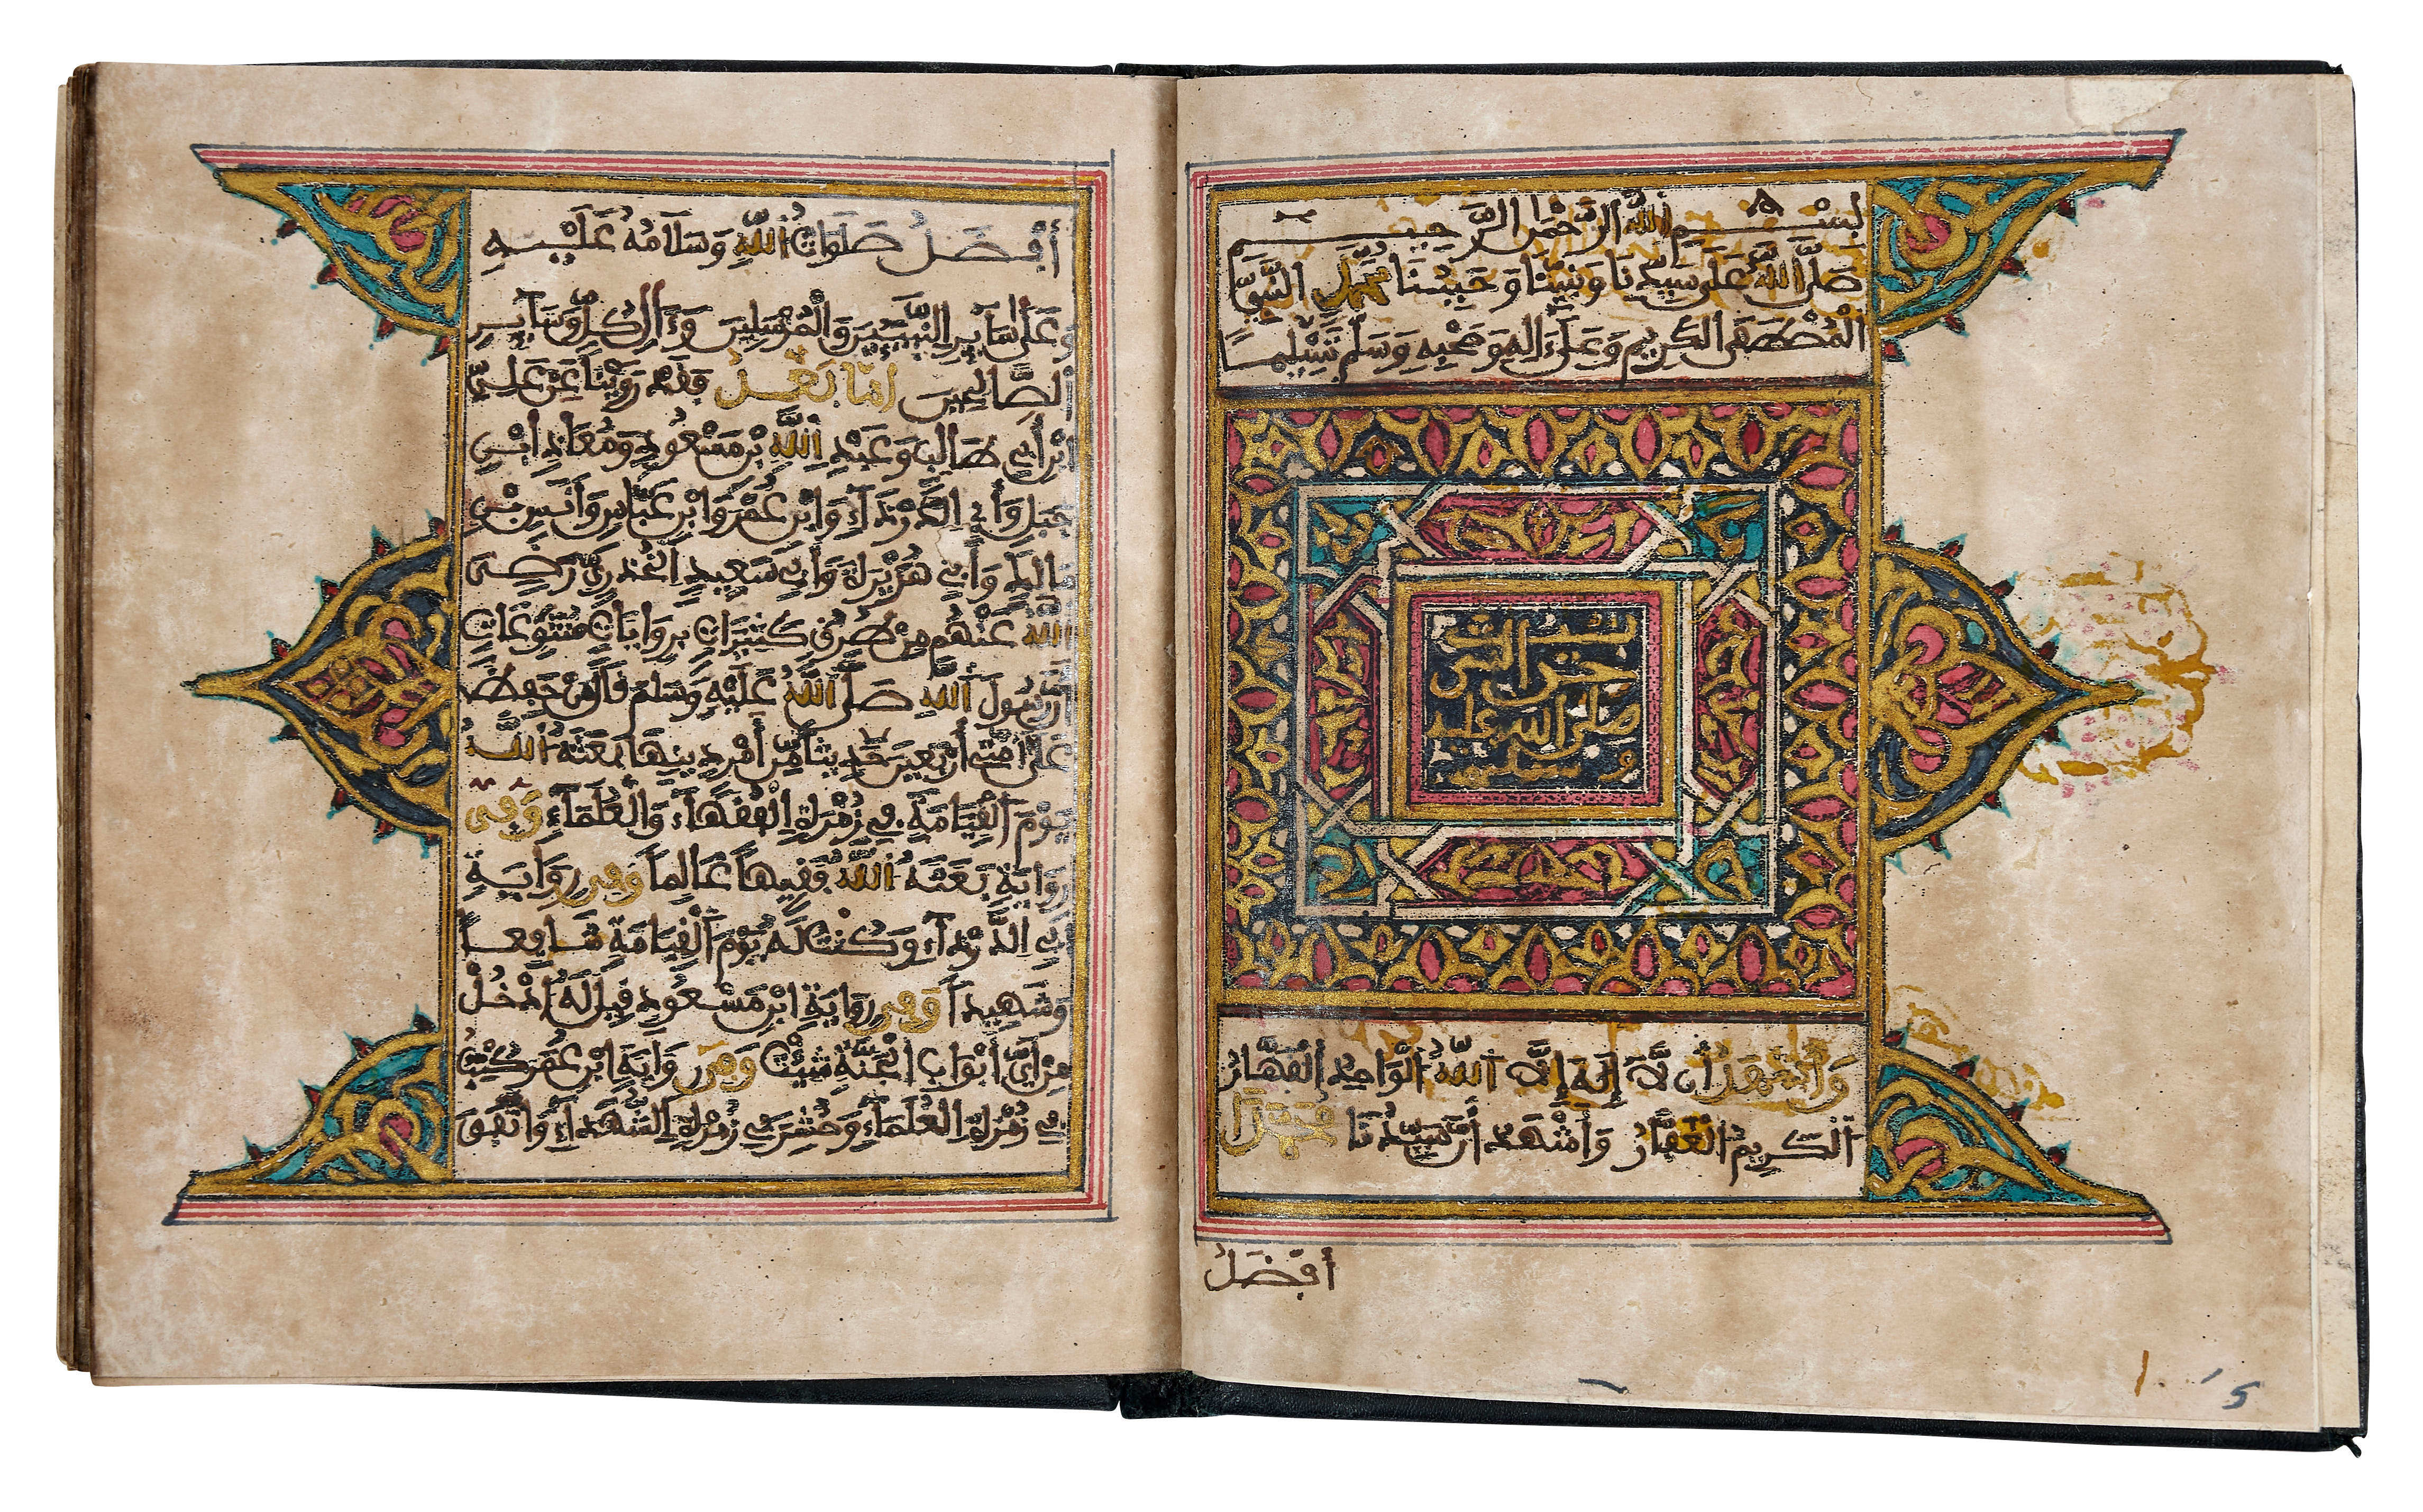 بِسْمِ اللَّهِ الرَّحْمَٰنِ الرَّحِيمِ
صَلَّى اللَّهُ عَلَى سَيِّدِنَا وَنَبِيِّنَا وَحَبِيبِنَا مُحَمَّدٍ النَّبِيِّ
الْمُصْطَفَى الْكَرِيمِ وَعَلَى ءَالِهِ وَصَحْبِهِ وَسَلَّمَ تَسْلِيمًا
صلى الله عليه
وسلم
وَأَشْهَدُ أَن لَّا إِلَهَ إِلَّا اللَّهُ الْوَاحِدُ الْقَهَّارُ
الْكَرِيمُ الْغَفَّارُ وَأَشْهَدُ أَنَّ سَيِّدَنَا مُحَمَّدًا
أَفْضَلُ
أَفْضَلُ صَلَوَاتُ اللَّهِ وَسَلَامُهُ عَلَيْهِ
وَعَلَى سَائِرِ النَّبِيِّينَ وَالْمُرْسَلِينَ وَءَالِ كُلٍّ وَسَائِرِ
الصَّالِحِينَ أَمَّا بَعْدُ فَقَدْ رَوَيْنَا عَنْ عَلِيِّ
ابْنِ أَبِي طَالِبٍ وَعَبْدِ اللَّهِ بْنِ مَسْعُودٍ وَمُعَاذِ ابْنِ
جَبَلٍ وَأَبِي الدَّرْدَاءِ وَابْنِ عُمَرَ وَابْنِ عَبَّاسٍ وَأَنَسِ بْنِ
مَالِكٍ وَأَبِي هُرَيْرَةَ وَأَبِي سَعِيدٍ الْخُدْرِيِّ رَضِيَ
اللَّهُ عَنْهُم مِنْ طُرُقٍ كَثِيرَاتٍ بِرِوَايَاتٍ مُتَنَوِّعَاتٍ
أَنَّ رَسُولَ اللَّهِ صَلَّى اللَّهُ عَلَيْهِ وَسَلَّمَ قَالَ مَنْ حَفِظَ
عَلَى أُمَّتِي أَرْبَعِينَ حَدِيثًا مِنْ أَمْرِ دِينِهَا بَعَثَهُ اللَّهُ
يَوْمَ الْقِيَامَةِ فِي زُمْرَةِ الْفُقَهَاءِ وَالْعُلَمَاءِ وَفِي
رِوَايَةٍ بَعَثَهُ اللَّهُ فَقِيهًا عَالِمًا وَفِي رِوَايَةِ
أَبِي الدَّرْدَاءِ وَكُنْتُ لَهُ يَوْمَ الْقِيَامَةِ شَافِعًا
وَشَهِيدًا وَفِي رِوَايَةِ ابْنِ مَسْعُودٍ قِيلَ لَهُ ادْخُلْ
مِنْ أَيِّ أَبْوَابِ الْجَنَّةِ شِئْتَ وَفِي رِوَايَةِ ابْنِ عُمَرَ كُتِبَ
فِي زُمْرَةِ الْعُلَمَاءِ وَحُشِرَ فِي زُمْرَةِ الشُّهَدَاءِ وَاتَّفَقَ